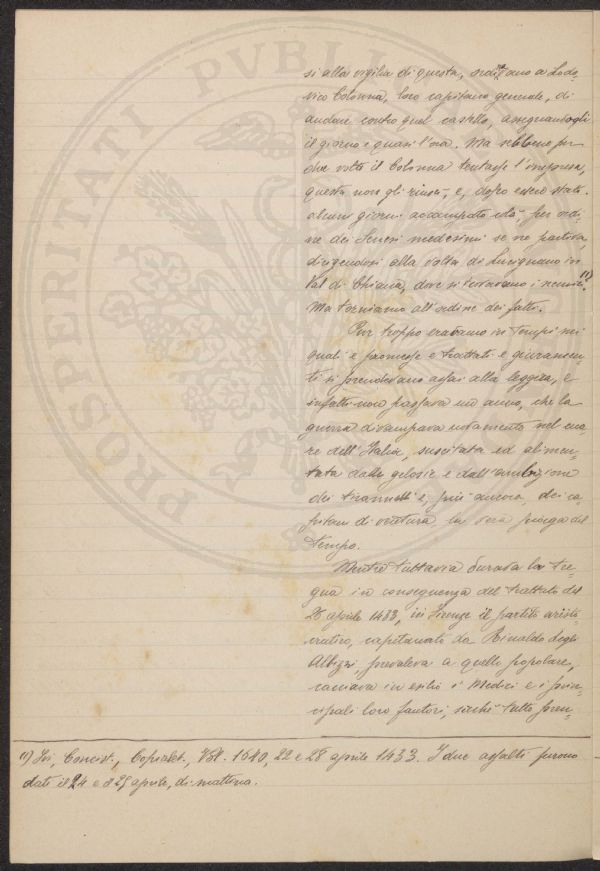 si alla vigilia di questa, ordinano a Lodo-
vico Colonna, loro capitano generale, di
andare contro quel castello, assegnandogli
il giorno e quasi l'ora. Ma sebbene per
due volte il Colonna tentasse l'impresa,
questa non gli riuscì, e, dopo essere stato
alcuni giorni accampato colà, per ordi-
ne dei Senesi medesimi se ne partiva,
dirigendosi alla volta di Lucignano in
Val di Chiana, dove si trovavano i nemici. (1)
Ma torniamo all'ordine dei fatti.
Pur troppo eravamo in tempi nei
quali e promesse e trattati e giuramen-
ti si prendevano assai alla leggera, e
infatti non passava un anno, che la
guerra divampava novamente nel cuo-
re dell'Italia, suscitata ed alimen-
tata dalle gelosie e dall'ambizione
dei tirannetti e, più ancora, dei ca-
pitani di ventura la vera piaga del
tempo.
Mentre tuttavia durava la tre-
gua in conseguenza del trattato del
26 aprile 1433, in Firenze il partito aristo-
cratico, capitanato da Rinaldo degli
Albizzi, prevaleva a quello popolare,
cacciava in esilio i Medici e i prin-
cipali loro fautori, sicché tutto pren-
(1) Ivi, Concist., Copialet., Vol. 1640, 22 e 28 aprile 1433. I due assalti furono
dati il 24 e 25 aprile, di mattina.
PROSPERITATI PVBLI